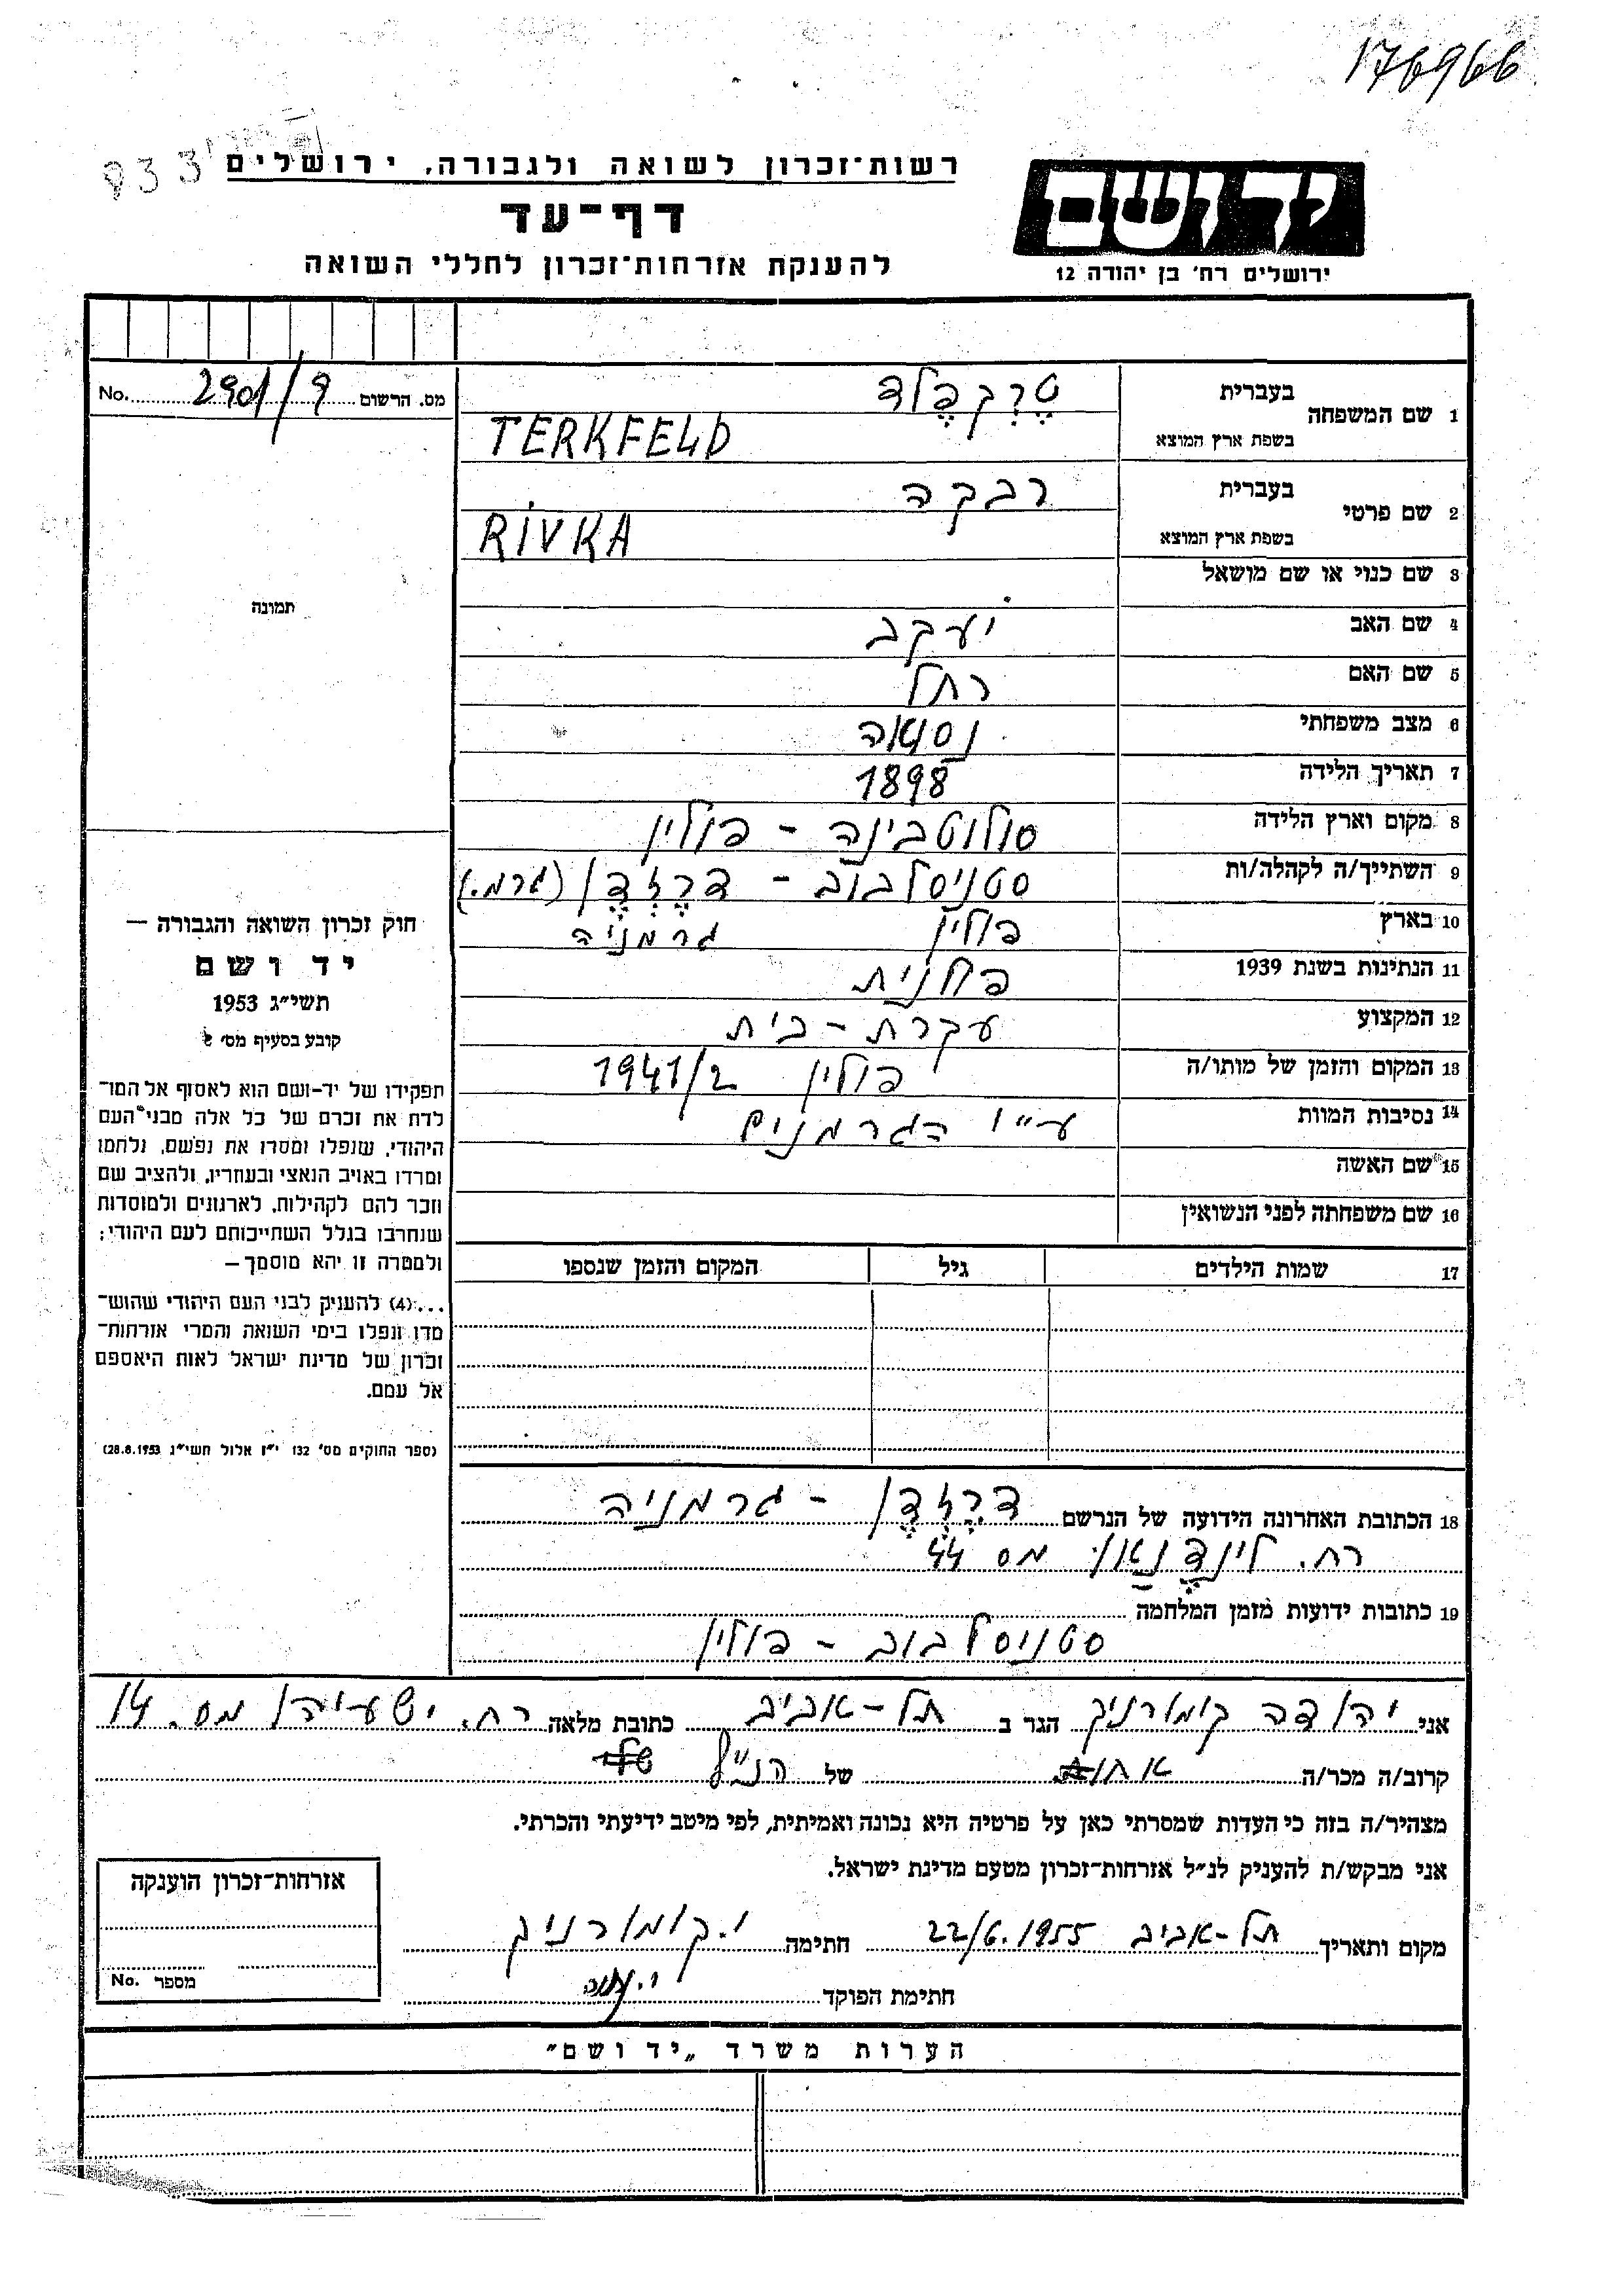 176966
933
רשות־זכרון לשואה ולגבורה, ירושלים
יד ושם
דף־עד
להענקת אזרחות־זכרון לחללי השואה
ירושלים רח' בן יהודה 12
מס. הרשום 2901/9 No.
1 שם המשפחה
בעברית טֶרְקפֶלד
בשפת ארץ המוצא TERKFELD
2 שם פרטי
בעברית רבקה
בשפת ארץ המוצא RIVKA
3 שם כנוי או שם מושאל
4 שם האב יעקב
5 שם האם רחל
6 מצב משפחתי נשואה
7 תאריך הלידה 1898
8 מקום וארץ הלידה סולוטבינה - פולין
9 השתייך/ה לקהלה/ות סטניסלבוב - דרֶזְדֶן (גרמ.)
10 בארץ פולין גרמניה
11 הנתינות בשנת 1939 פולנית
12 המקצוע עקרת-בית
13 המקום והזמן של מותו/ה פולין 1941/2
14 נסיבות המוות ע"י הגרמנים
15 שם האשה
16 שם משפחתה לפני הנשואין
17 שמות הילדים גיל המקום והזמן שנספו
תמונה
חוק זכרון השואה והגבורה —
יד ושם
תשי"ג 1953
קובע בסעיף מס' 2
תפקידו של יד-ושם הוא לאסוף אל המו־
לדת את זכרם של כל אלה מבני העם
היהודי, שנפלו ומסרו את נפשם, נלחמו
ומרדו באויב הנאצי ובעוזריו, ולהציב שם
וזכר להם לקהילות, לארגונים ולמוסדות
שנחרבו בגלל השתייכותם לעם היהודי;
ולמטרה זו יהא מוסמך —
...(4) להעניק לבני העם היהודי שהוש־
מדו ונפלו בימי השואה והמרי אזרחות־
זכרון של מדינת ישראל לאות היאספם
אל עמם.
(ספר החוקים מס' 132 י"ז אלול תשי"ג 28.8.1953)
18 הכתובת האחרונה הידועה של הנרשם דרֶזְדֶן - גרמניה
רח. לינדֶנַאוּ מס 44
19 כתובות ידועות מזמן המלחמה
סטניסלבוב - פולין
אני יהודה קומורניק הגר ב תל-אביב כתובת מלאה רח. ישעיהו מס. 14
קרוב/ה מכר/ה של הנ"ל
מצהיר/ה בזה כי העדות שמסרתי כאן על פרטיה היא נכונה ואמיתית, לפי מיטב ידיעתי והכרתי.
אני מבקש/ת להעניק לנ"ל אזרחות־זכרון מטעם מדינת ישראל.
מקום ותאריך תל-אביב 22/6.1955 חתימה י.קומורניק
חתימת הפוקד
אזרחות־זכרון הוענקה
מספר No.
הערות משרד „יד ושם"